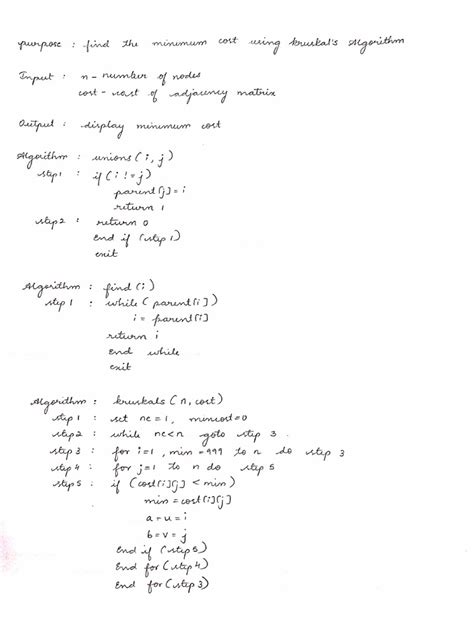 purpose : find the minimum cost using kruskal's Algorithm
Input : n - number of nodes
cost - cost of adjacency matrix
Output : display minimum cost
Algorithm : unions (i, j)
step1 : if (i != j)
parent[j] = i
return 1
step2 : return 0
End if (step 1)
exit
Algorithm : find (i)
step 1 : while (parent[i])
i = parent[i]
return i
End while
exit
Algorithm : kruskals (n, cost)
step 1 : set ne = 1, mincost = 0
step 2 : while ne<n goto step 3
step 3 : for i=1, min = 999 to n do step 3
step 4 : for j=1 to n do step 5
step 5 : if (cost[i][j] < min)
min = cost[i][j]
a = u = i
b = v = j
End if (step 5)
End for (step 4)
End for (step 3)